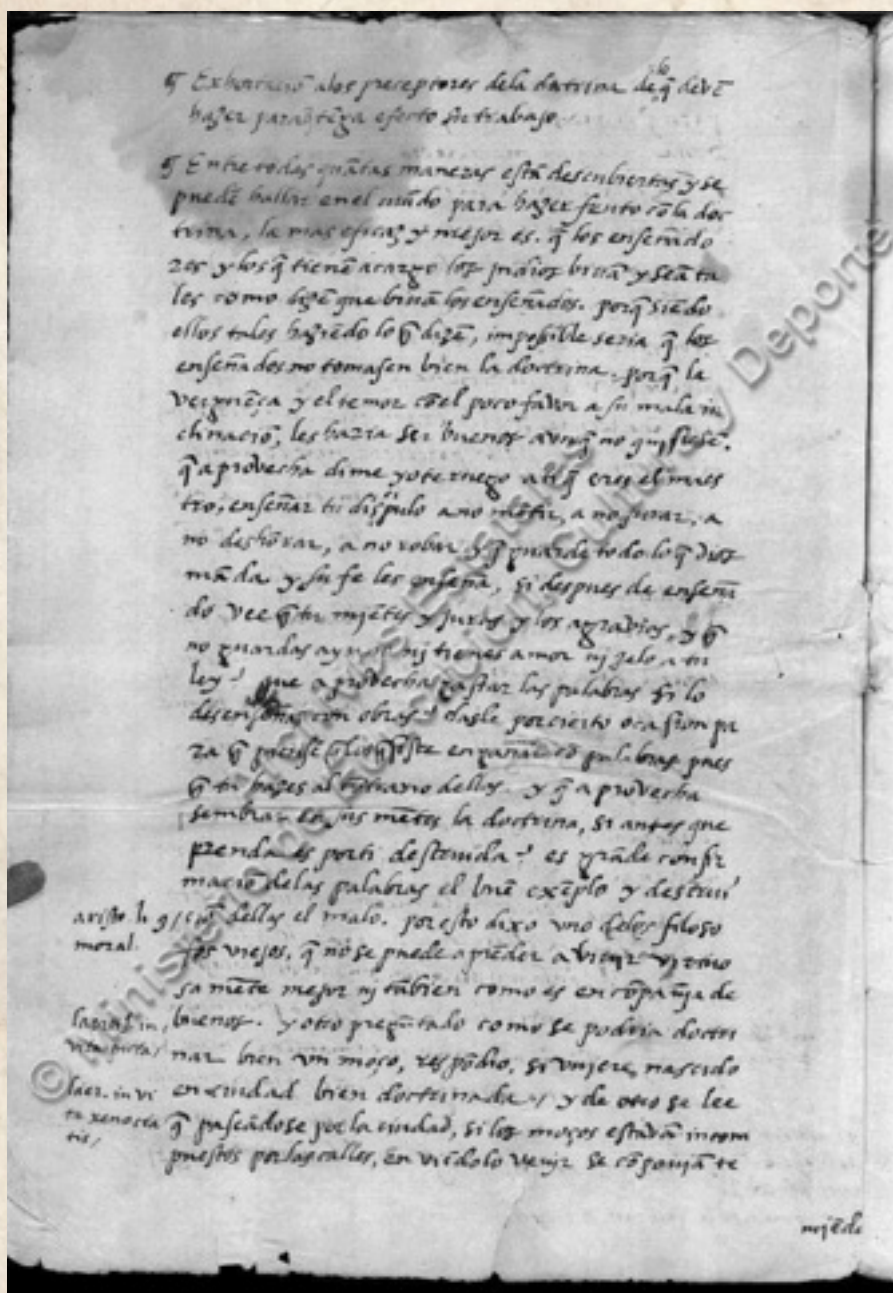 ¶ Exhortaciõ alos preceptores dela doctrina de lo q̃ devẽ
hazer para q̃ tẽga efecto su trabajo
¶ Entre todas quãtas maneras estã descubiertas y se
puedẽ hallar en el mũdo para hazer fruto cõ la doc
trina, la mas eficaz y mejor es. q̃ los enseñado
res y los q̃ tienẽ a cargo los judios bivã y seã ta
les como dizẽ que bivã los enseñados. porq̃ siẽdo
ellos tales haziẽdo lo q̃ dizẽ, impossible seria q̃ los
enseñados no tomasen bien la doctrina. porq̃ la
verguẽça y el temor cõ el poco favor a su mala in
clinaciõ, les haria ser buenos aunq̃ no quisiesẽ.
q̃ aprovecha dime yo te ruego a ti q̃ eres el maes
tro, enseñar tu discipulo a no mẽtir, a no jurar, a
no deshõrar, a no robar y q̃ guarde todo lo q̃ dios
mãda y su fe les enseña, si despues de enseña
do vee q̃ tu miẽtes y juras y los agravias, y q̃
no guardas ayuno nj tienes amor nj zelo a tu
ley? que aprovecha gastar las palabras si lo
desenseñas con obras? dasle por cierto ocasion pa
ra q̃ piẽse q̃ lo q̃ oyste en palabras pues
q̃ tu hazes al cõtrario dellas. y q̃ aprovecha
sembrar en sus mẽtes la doctrina, si antes que
prenda es por ti destruida? es grãde confir
maciõ delas palabras el buẽ exẽplo y destrui
aristo. li 9 / ciõ dellas el malo. por esto dixo uno delos filoso
moral. fos viejos, q̃ no se puede aprẽder a vivir virtuo
sa mẽte mejor nj tãbien como es en cõpañja de
buenos. y otro pregũtado como se podria doctri
nar bien un moço, respõdio, si vnjere nascido
laer. in vi en ciudad bien doctrinada / y de otro se lee
ta xenocra q̃ paseãdose por la ciudad, si los moços estavã incom
tis / puestos por las calles, en viẽdolo venjr se cõponjã te
njẽdo
© Ministerio de Educación, Cultura y Deporte